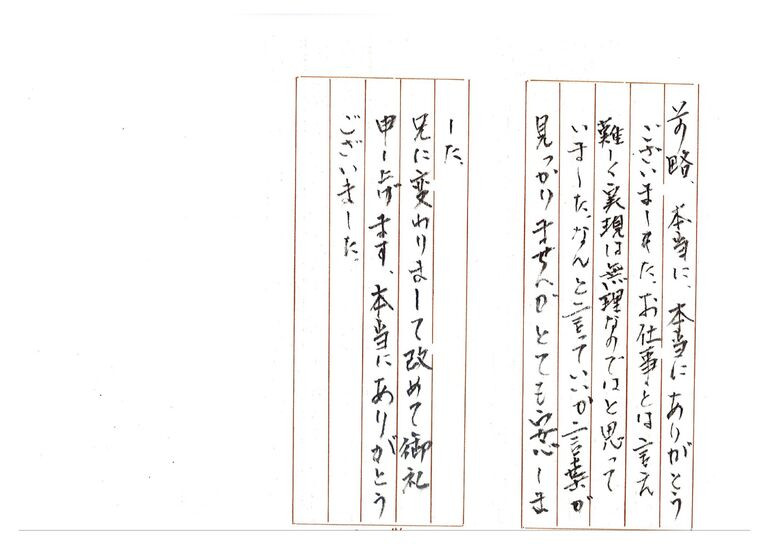 前略、本当に、本当にありがとう
ございました。お仕事とは言え
難しく実現は無理なのではと思って
いました。なんと言っていいか言葉が
見つかりませんがとても安心しま
した。
兄に変わりまして改めて御礼
申し上げます、本当にありがとう
ございました。